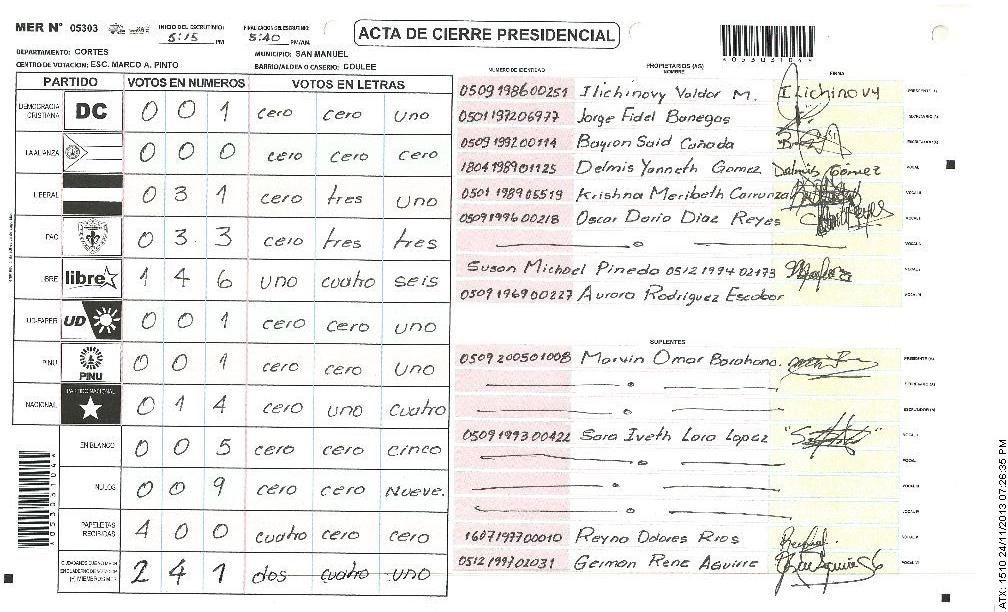 MER Nº 05303 INICIO DEL ESCRUTINIO: 5:15 PM FINALIZACION DEL ESCRUTINIO: 5:40 PM/AM.
ACTA DE CIERRE PRESIDENCIAL
DEPARTAMENTO: CORTES MUNICIPIO: SAN MANUEL
CENTRO DE VOTACION: ESC. MARCO A. PINTO BARRIO/ALDEA O CASERIO: COULEE
PARTIDO VOTOS EN NUMEROS VOTOS EN LETRAS
DEMOCRACIA CRISTIANA DC 0 0 1 cero cero uno
LA ALIANZA 0 0 0 cero cero cero
LIBERAL 0 3 1 cero tres uno
PAC 0 3 3 cero tres tres
LIBRE libre 1 4 6 uno cuatro seis
UD-FAPER UD 0 0 1 cero cero uno
PINU PINU 0 0 1 cero cero uno
NACIONAL PARTIDO NACIONAL 0 1 4 cero uno cuatro
EN BLANCO 0 0 5 cero cero cinco
NULOS 0 0 9 cero cero Nueve.
PAPELETAS RECIBIDAS 4 0 0 cuatro cero cero
2 4 1 dos cuatro uno
NUMERO DE IDENTIDAD PROPIETARIOS (AS) NOMBRE FIRMA
0509198600251 Ilichinovy Valdor M. Ilichinovy PRESIDENTE (A)
0501197206977 Jorge Fidel Banegas SECRETARIO (A)
0509199200114 Bayron Said Cañada ESCRUTADOR (A)
1804198901125 Delmis Yanneth Gomez Delmis Gomez VOCAL I
0501198905519 Krishna Meribeth Carranza VOCAL II
0509199600218 Oscar Dario Diaz Reyes
Susan Michael Pineda 0512199402173
0509196900227 Aurora Rodriguez Escobar
SUPLENTES
0509200501008 Marvin Omar Barahona. PRESIDENTE (A)
SECRETARIO (A)
ESCRUTADOR (A)
0509199300422 Sara Iveth Lara Lopez VOCAL I
1607197700010 Reyna Dolores Rios
0512199702031 German Rene Aguirre
A0530310 4A
ATX: 1510 24/11/2013 07:26:35 PM